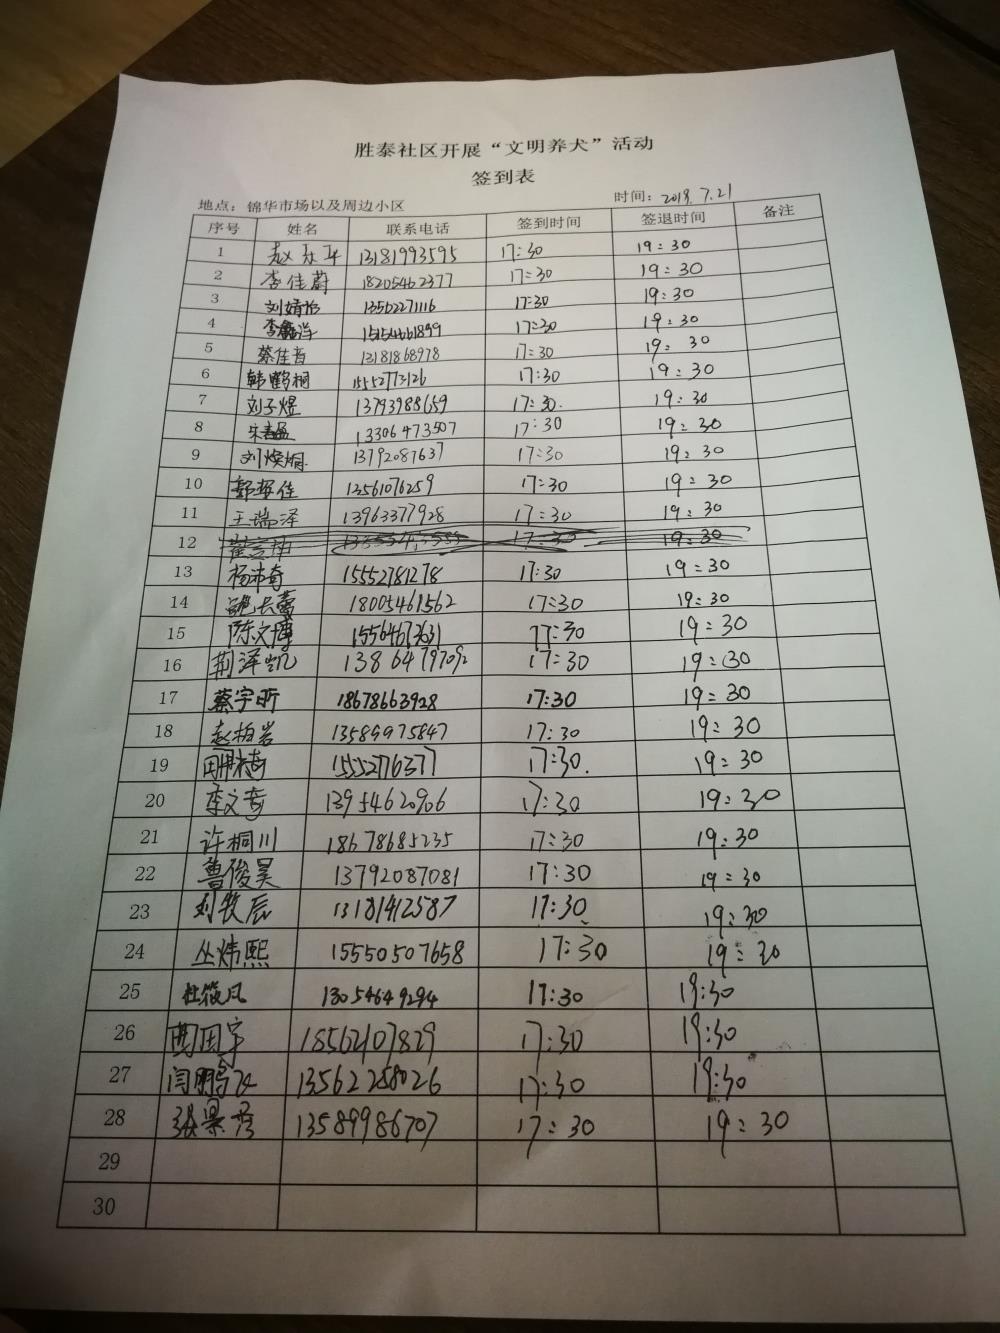 胜泰社区开展“文明养犬”活动
签到表
地点：锦华市场以及周边小区 时间：2018.7.21
序号 姓名 联系电话 签到时间 签退时间 备注
1 13181993595 17:30 19:30
2 李佳蔚 18205462377 17:30 19:30
3 刘婧怡 13562271116 17:30 19:30
4 15154661899 17:30 19:30
5 蔡佳音 13181868978 17:30 19:30
6 韩鹤桐 15552773126 17:30 19:30
7 刘子煜 13793988659 17:30. 19:30
8 13306473507 17:30 19:30
9 刘焕炯 13792087637 17:30 19:30
10 13561076259 17:30 19:30
11 王瑞泽 13963377928 17:30 19:30
12 17:30 19:30
13 杨沛奇 15552781278 17:30 19:30
14 18005461562 17:30 19:30
15 陈文博 15564673631 17:30 19:30
16 荆泽凯 13864797092 17:30 19:30
17 蔡宇昕 18678663928 17:30 19:30
18 赵柏岩 13589975847 17:30 19:30
19 15552776377 17:30. 19:30
20 李文奇 13954620906 17:30 19:30
21 许桐川 18678685235 17:30 19:30
22 鲁俊昊 13792087081 17:30 19:30
23 刘牧辰 13181412587 17:30 19:30
24 丛炜熙 15550507658 17:30 19:30
25 杜筱凡 13054649294 17:30 19:30
26 18562107829 17:30 19:30
27 闫鹏飞 13562258026 17:30 19:30
28 张景彦 13589986707 17:30 19:30
29
30